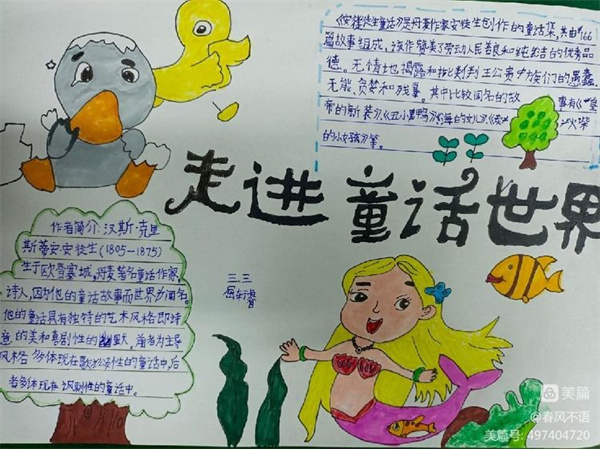 《安徒生童话》是丹麦作家安徒生创作的童话集,共由166
篇故事组成,该作赞美了劳动人民善良和纯洁的优秀品
德。无情地揭露和批判王公贵族们的愚蠢、
无能、贪婪和残暴。其中比较闻名的故事有《皇
帝的新装》《丑小鸭》《海的女儿》《卖火柴
的小女孩》等。
走进童话世界
作者简介:汉斯·克里
斯蒂安·安徒生(1805-1875)
生于欧登塞城,丹麦著名童话作家,
诗人,因为他的童话故事而世界闻名。
他的童话具有独特的艺术风格即诗
意的美和喜剧性的幽默 前者为主导
风格 多体现在歌颂性的童话中,后
者多体现在讽刺性的童话中。
三.三
美篇
@春风不语
美篇号: 497404720